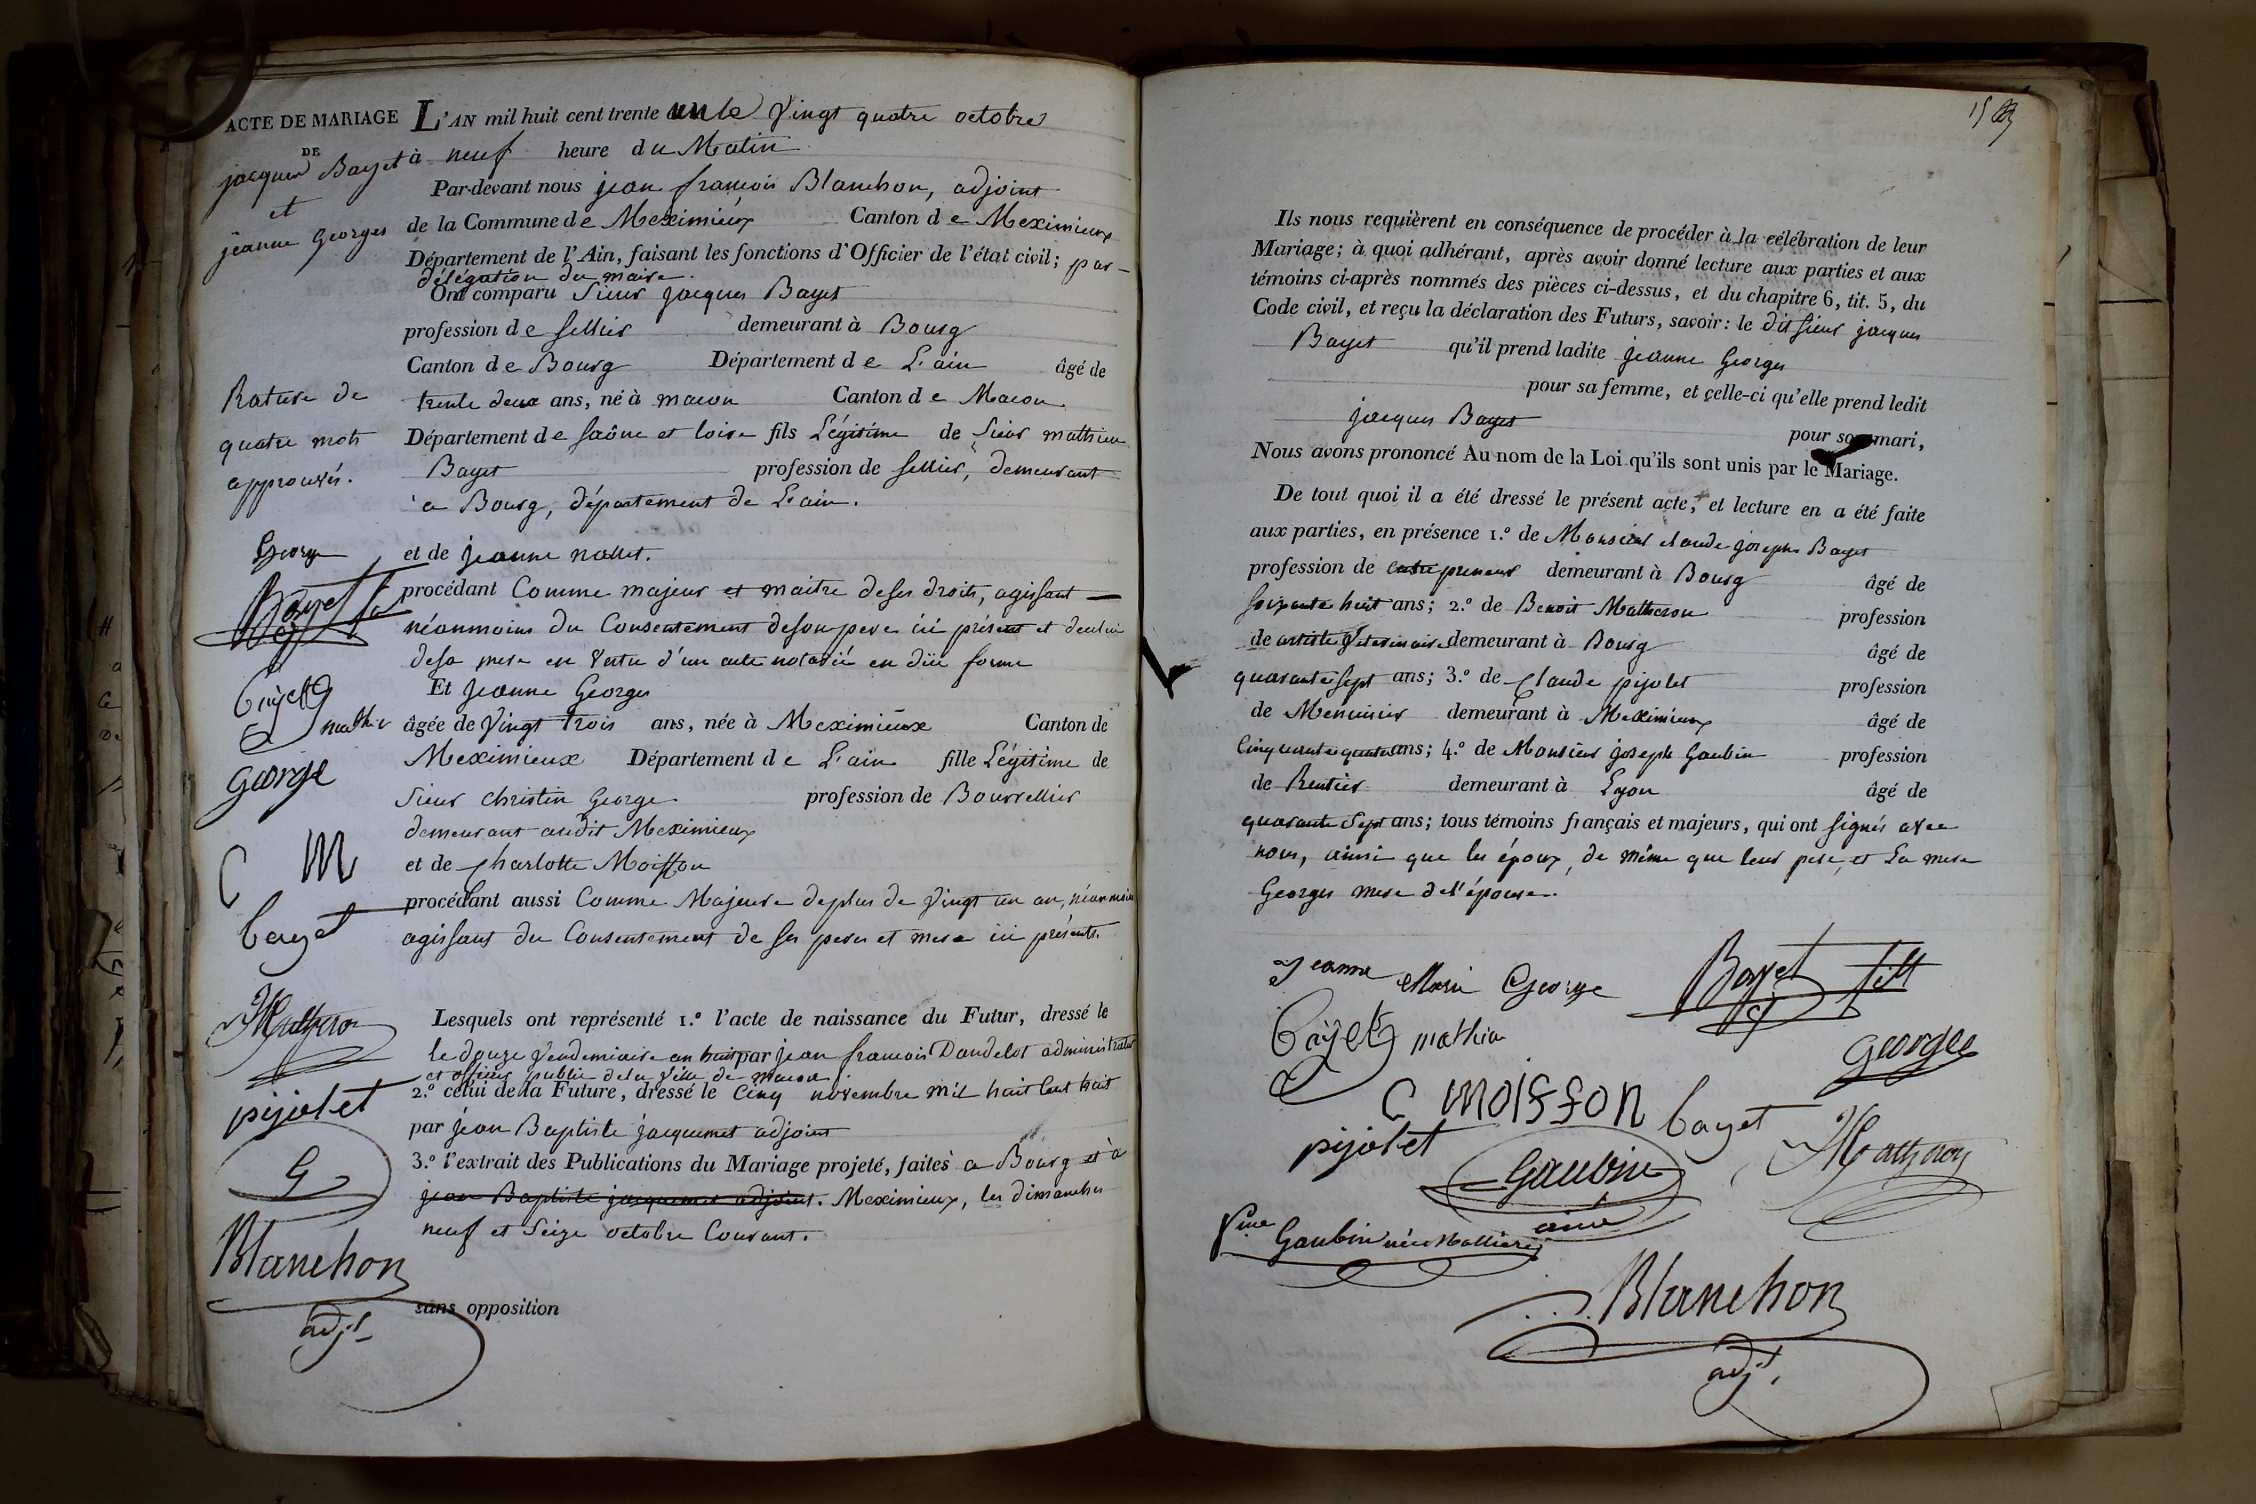 ACTE DE MARIAGE
DE
jacques Bayet
et
jeanne Georges
L'AN mil huit cent trente un le Vingt quatre octobre
à neuf heure du Matin
Par-devant nous jean françois Blanchon, adjoint
de la Commune de Meximieux Canton de Meximieux
Département de l'Ain, faisant les fonctions d'Officier de l'état civil; par
délégation du maire.
Ont comparu Sieur jacques Bayet
profession de sellier demeurant à Bourg
Canton de Bourg Département de L'ain âgé de
trente deux ans, né à macon Canton de Macon
Département de saône et loire fils Légitime de Sieur mathieu
Bayet profession de sellier, demeurant
a Bourg, département de L'ain.
et de jeanne nallet.
procédant Comme majeur et maitre de ses droits, agissant
néanmoins du Consentement de son pere ici présent et de celui
de sa mere en vertu d'un acte notarié en düe forme
Et jeanne Georges
âgée de Vingt trois ans, née à Meximieux Canton de
Meximieux Département de L'ain fille Légitime de
Sieur christin George profession de Bourrellier
demeurant audit Meximieux
et de Charlotte Moisson
procédant aussi Comme Majeure de plus de Vingt un an, néanmoins
agissant du Consentement de ses peres et mere ici présents.
Lesquels ont représenté 1.º l'acte de naissance du Futur, dressé le
le douze Vendemiaire an huit par jean francois Dandelot administrateur
et officier public de la Ville de macon.
2.º celui de la Future, dressé le Cinq novembre mil huit Cent huit
par jean Baptiste jacquemet adjoint
3.º l'extrait des Publications du Mariage projeté, faites a Bourg et à
jean Baptiste jacquemet adjoint. Meximieux, les dimanches
neuf et Seize octobre Courant.
sans opposition
Rature de
quatre mots
approuvés.
George
Bayet fils
bayet mathieu
george
C M
bayet
Matheron
pijolet
G
Blanchon
adjt
Ils nous requièrent en conséquence de procéder à la célébration de leur
Mariage; à quoi adhérant, après avoir donné lecture aux parties et aux
témoins ci-après nommés des pièces ci-dessus, et du chapitre 6, tit. 5, du
Code civil, et reçu la déclaration des Futurs, savoir: le dit sieur jacques
Bayet qu'il prend ladite jeanne Georges
pour sa femme, et celle-ci qu'elle prend ledit
jacques Bayet
pour son mari,
Nous avons prononcé Au nom de la Loi qu'ils sont unis par le Mariage.
De tout quoi il a été dressé le présent acte, et lecture en a été faite
aux parties, en présence 1.º de Monsieur claude joseph Bayet
profession de entrepreneur demeurant à Bourg âgé de
soixante huit ans; 2.º de Benoit Matheron profession
de artiste Veterinaire demeurant à Bourg âgé de
quarante sept ans; 3.º de Claude pijolet profession
de Menuisier demeurant à Meximieux âgé de
Cinquante quatre ans; 4.º de Monsieur joseph Gaubin profession
de Rentier demeurant à Lyon âgé de
quarante sept ans; tous témoins français et majeurs, qui ont signés avec
nous, ainsi que les époux, de même que leur pere, et La mere
Georges mere de l'épouse.
Jeanne Marie George
Bayet fils
bayet mathieu
george
C moisson
bayet
pijolet
Gaubin
ainé
Matheron
Gaubin née
Blanchon
adjt